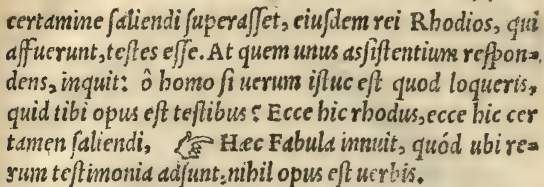 certamine ſaliendi ſuperaſſet, eiuſdem rei Rhodios, qui
affuerunt, teſtes eſſe. At quem unus aſsiſtentium reſpon=
dens, inquit: ô homo ſi uerum iſtuc eſt quod loqueris,
quid tibi opus eſt teſtibus? Ecce hic rhodus, ecce hic cer
tamen ſaliendi, ☞ Hæc Fabula innuit, quód ubi re=
rum teſtimonia adſunt, nihil opus eſt uerbis.